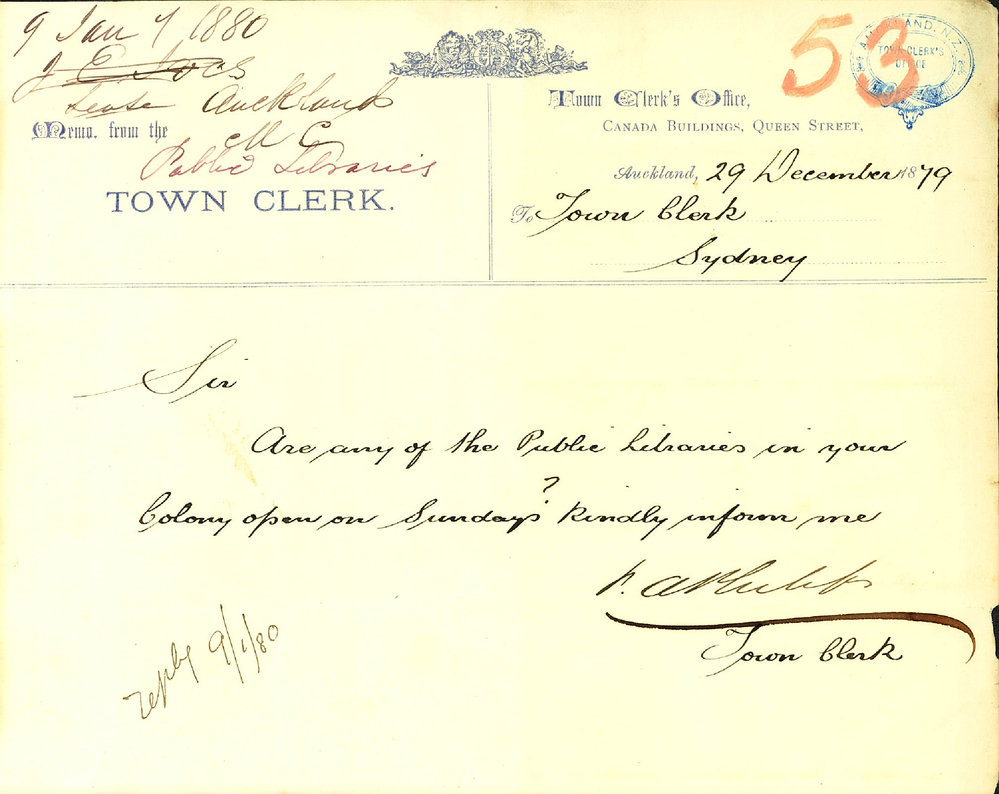 9 Jan 7 1880
Auckland
M C
Public Libraries
Memo. from the
TOWN CLERK.
53
AUCKLAND, N.Z.
TOWN CLERK'S
OFFICE
Town Clerk's Office,
CANADA BUILDINGS, QUEEN STREET,
Auckland, 29 December 1879
To Town Clerk
Sydney
Sir
Are any of the Public Libraries in your
Colony open on Sundays? Kindly inform me
Town Clerk
reply 9/1/80